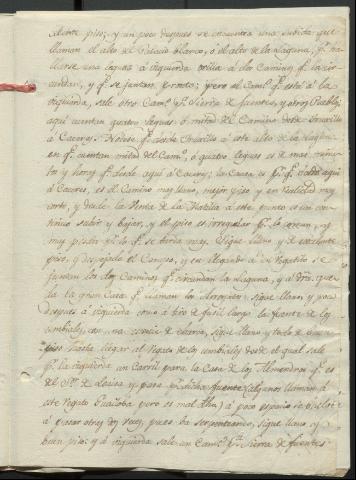 lente piso; y un poco despues se encuentra una subida que
llaman el alto de Palacio blanco, ò el alto de la Laguna, pr. ha-
llarse una laguna á izquierda orilla á dos Caminos qe. la cir-
cundan, y qe. se juntan pronto; pero al Camo. qe. está á la
izquierda, sale otro Camo. pa. Sierra de fuentes, y otros Pueblos;
aqui cuentan quatro leguas ò mitad del Camino desde Truxillo
á Caceres. Notese qe. desde Truxillo á este alto de la Laguna
en qe. cuentan mitad del Camo. ò quatro leguas es de mas minu-
tos y horas qe. desde aqui á Caceres; la causa es pr. qe. desde aqui
á Caceres, es el Camino muy llano, mejor piso y en realidad mas
corto, y desde la Venta de la Matilla á este punto es un con-
tinuo subir y bajar, y el piso es irregular pr. lo comun, y
muy pesado pr. lo qe. se tarda mas. Sigue llano y de excelente
piso, y despejado el Campo, y en llegando á un Regatito se
juntan los dos Caminos qe. circundan la Laguna, y á dra. que-
da la gran Casa qe. llaman los Arrogatos: sigue llano, y poco
despues á izquierda como á tiro de fusil largo la fuente de los
combiales con una cerca de , sigue llano y todo de buen
piso hasta llegar al Regato de los combiales desde el qual sale
pr. la izquierda un Carril para la Casa de los Almendros qe. es
del Sr. de Loaisa y pasa pr. dicha fuente (algunos llaman á
este Regato Guadiloba pero es mal dho.) á poco espacio se vuelve
á pasar otras dos veces, pues ba serpenteando, sigue llano y
buen piso: y á izquierda sale un Camo. pa. Sierra de fuentes